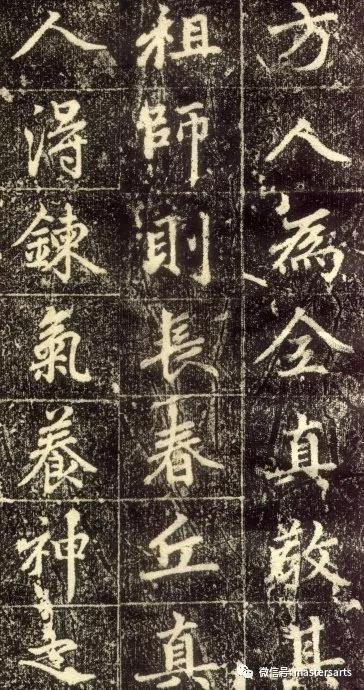 方人為全真敬其
祖師則長春丘真
人得鍊氣養神
微信号: mastersarts